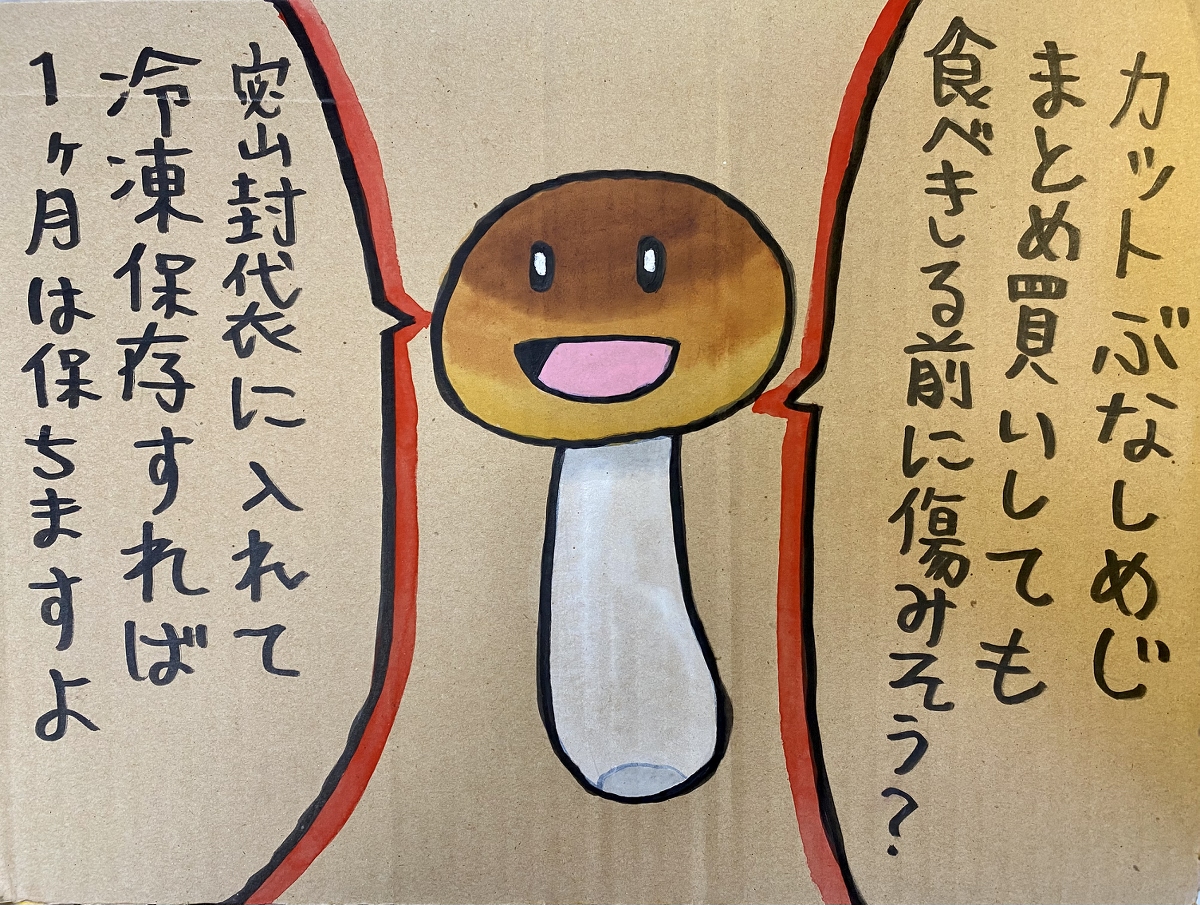 カットぶなしめじ
まとめ買いしても
食べきる前に傷みそう?
密封袋に入れて
冷凍保存すれば
1ヶ月は保ちますよ